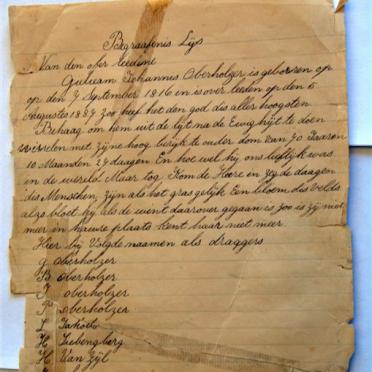 Begraafenes Lys
Van den over leedene
Guilliam Johannes Oberholzer is gebooren op
op den 7 September 1816 en is over leeden op den 5
Augustes 1887 zoo heef het den god des aller hoogsten
Behaag om hem uit de tyt na de Ewig hyt te doen
wisselen met zyne hoog beryk te ouder dom van 70 Jaaren
10 Maanden 29 daagen En hoe wel hy ons lieflyk was
in de wereld Maar tog kom de Heere en zeg de daagen
des Menschen zyn als het gras gelyk Een bloem des velds
alzo bloet hy als de went daarover gegaan is zoo is zy niet
meer en haure plaats kent haar niet meer
Hier by Volgde naamen als draggers
g oberholzer
B oberholzer
J oberholzer
P oberholzer
L
H Liebengberg
H Van Zyl